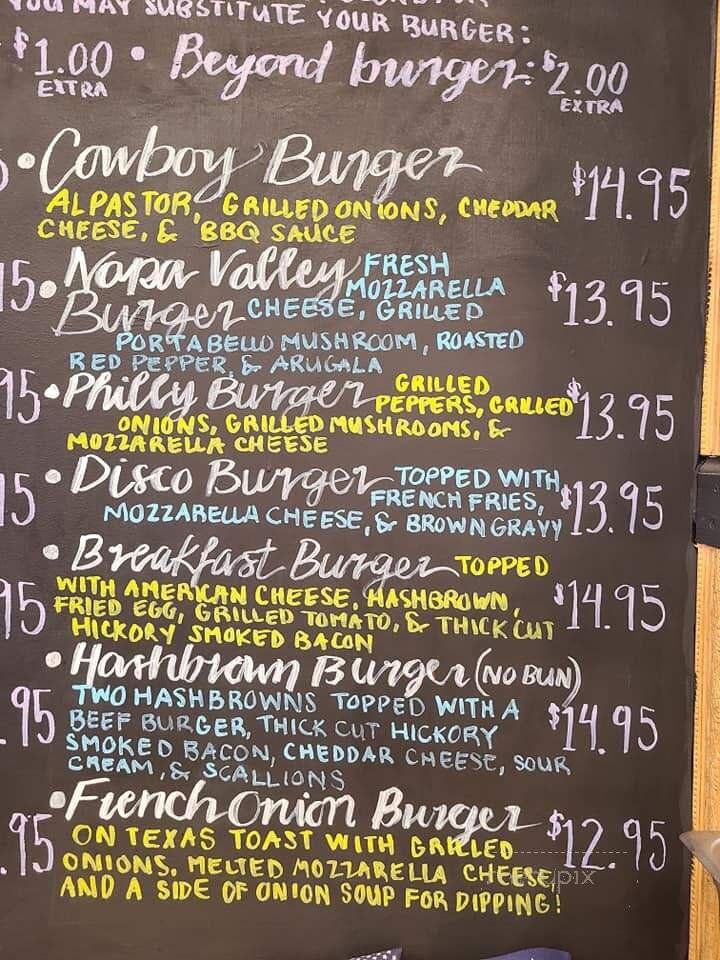 YOU MAY SUBSTITUTE YOUR BURGER:
$1.00 EXTRA • Beyond burger: $2.00 EXTRA
• Cowboy Burger $14.95
AL PASTOR, GRILLED ONIONS, CHEDDAR
CHEESE, & BBQ SAUCE
15 • Napa Valley FRESH
MOZZARELLA
Burger CHEESE, GRILLED $13.95
PORTABELLO MUSHROOM, ROASTED
RED PEPPER, & ARUGALA
95 • Philly Burger GRILLED
PEPPERS, GRILLED $13.95
ONIONS, GRILLED MUSHROOMS, &
MOZZARELLA CHEESE
15 • Disco Burger TOPPED WITH
FRENCH FRIES, $13.95
MOZZARELLA CHEESE, & BROWN GRAVY
• Breakfast Burger TOPPED
95 WITH AMERICAN CHEESE, HASHBROWN, $14.95
FRIED EGG, GRILLED TOMATO, & THICK CUT
HICKORY SMOKED BACON
• Hashbrown Burger (NO BUN)
TWO HASHBROWNS TOPPED WITH A
.95 BEEF BURGER, THICK CUT HICKORY $14.95
SMOKED BACON, CHEDDAR CHEESE, SOUR
CREAM, & SCALLIONS
• French Onion Burger $12.95
.95 ON TEXAS TOAST WITH GRILLED
ONIONS, MELTED MOZZARELLA CHEESE,
AND A SIDE OF ONION SOUP FOR DIPPING!